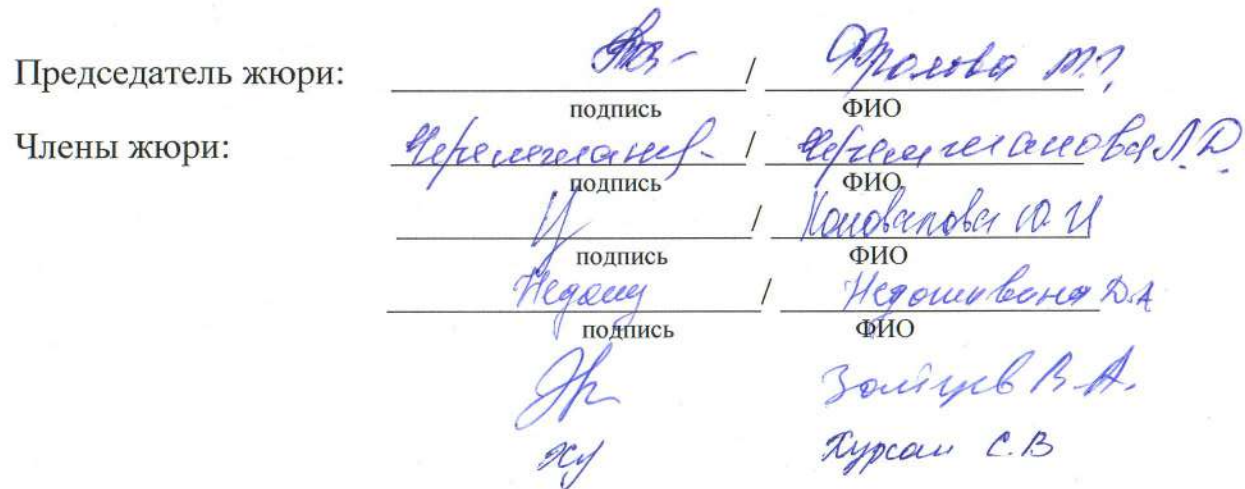 Председатель жюри: / Фролова Т.Г.
подпись ФИО
Члены жюри: / Черемшанова Л.Д.
подпись ФИО
/ Коновалова Ю.И
подпись ФИО
Недош / Недошивина Д.А
подпись ФИО
Зайцев В.А.
Ху Хурсан С.В